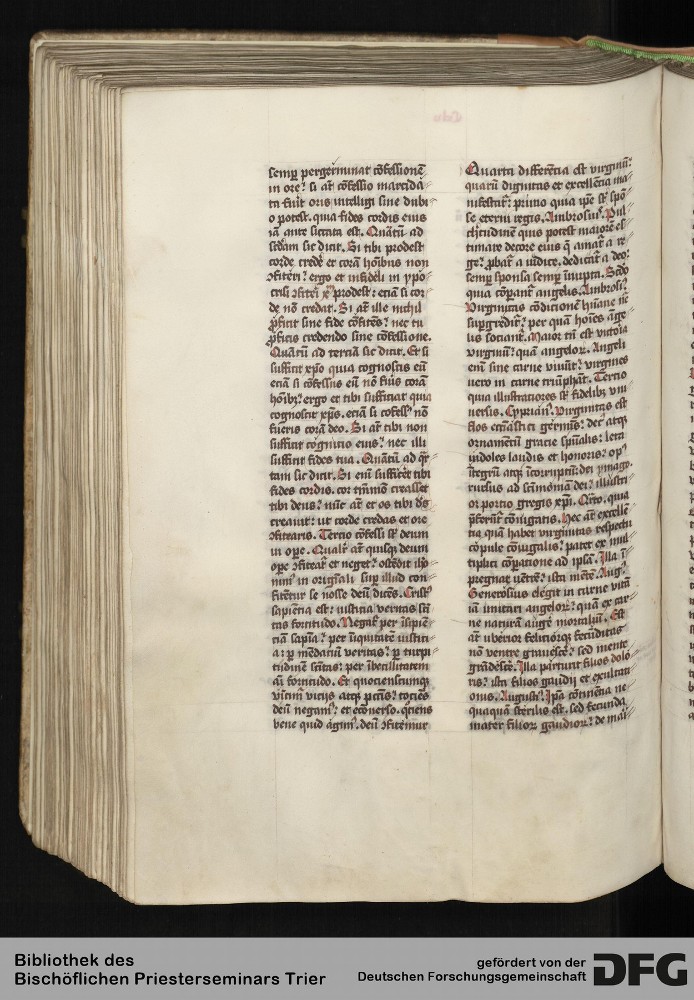 semꝑ pergerminat cōfessionē
in ore? si aūt cōfessio marcida-
ta fuit oris intelligi sine dubi-
o potest. quia fides cordis eius
iā ante siccata est. Quātū ad
scdam sic dicit. Si tibi prodest
corde credē et corā hoībus non
ꝯfiteri? ergo et infideli in ypo-
crisi ꝯfiteri xp̄m prodest: etiā si cor-
de nō credat. Si aūt ille nichil
ꝓficit sine fide cōfitēs? nec tu
ꝓficis credendo sine cōfessione.
Quātū ad terciā sic dicit. Et si
sufficit xp̄o quia cognoscis eū
etiā si cōfessus eū nō fūis corā
hoībꝫ? ergo et tibi sufficiat quia
cognoscit xp̄us. etiā si cōfess nō
fueris corā deo. Si aūt tibi non
sufficit cognitio eius? nec illi
sufficit fides tua. Quātū ad qr-
tam sic dicit. Si enī sufficēt tibi
fides cordis. cor tm̄mō creasset
tibi deus? nūc aūt et os tibi ds
creauit: ut corde credas et ore
ꝯfitearis. Tercio cōfessi sē deum
in ope. Qualr aūt quisqꝫ deum
ope ꝯfiteat et neget? ostēdit iho-
nim in originali sup illud con-
fitētur se nosse deū dicēs. Cristꝰ
sapiētia est: iusticia veritas scī-
tas fortitudo. Negat per isipiē-
tiā sapīa? per iniquitatē iustici-
a: ꝑ mēdaciū veritas? ꝑ turpi-
tudinem scītas: per ibecillitatem
aī fortitudo. Et quocienscumqꝫ
vicim vicijs atqꝫ pctis? tociēs
deū negamꝰ: et ecōuerso. qciens
bene quid agimꝰ. deū ꝯfitemur
Quarta differētia est virginū?
quarū dignitas et excellēcia ma-
nifestat: primo quia ipē sūt spō-
se eterni regis. Ambrosiꝰ. Pul-
chritudinē quis potest maiorē es-
timare decore eius q̄ amat a re-
ge? ꝓbat a iudice. dedicat a deo?
semꝑ sponsa semꝑ inupta. Scdo
quia cōpant angelis. Ambrosi?
Virginitas cōdicionē hūane nē
supgredit? per quā hoīes ange-
lis sociant. Maior tn̄ est victoria
virginū? quā angeloꝝ. Angeli
enī sine carne viuūt? virgines
uero in carne triūphāt. Tercio
quia illustratiores sūt fidelibꝫ vni
uersis. Cyprianꝰ. Virginitas est
flos ecclastici germis? decꝰ atqꝫ
ornamentū gracie spūalis: leta
indoles laudis et honoris? opꝰ
ītegrū atqꝫ īcorruptū: dei ymago.
rursus ad scīmōniā dei? illustri-
or portio gregis xp̄i. Qrto. quia
pferūt cōiugatis. Hec aūt excellē-
tia quā habet virginitas respectu
copule cōiugalis? patet ex mul-
tiplici cōpatione ad ipsā. Illa ī-
pregnat uētrē? ista mētē. Augꝰ.
Generosius elegit in carne vitā
iā imitari angeloꝝ? quā ex car-
ne naturā augē mortaliū. Est
aūt uberior feliciorqꝫ fecūditas
nō ventre grauescē? sed mente
grādescē. Illa parturit filios dolo-
ris? ista filios gaudij et exultati-
onis. Augustiꝰ. Ipa cōtinēcia ne-
quaquā sterilis est. sed fecūda.
mater filioꝝ gaudioꝝ? de mari-
Bibliothek des
Bischöflichen Priesterseminars Trier
gefördert von der
Deutschen Forschungsgemeinschaft
DFG